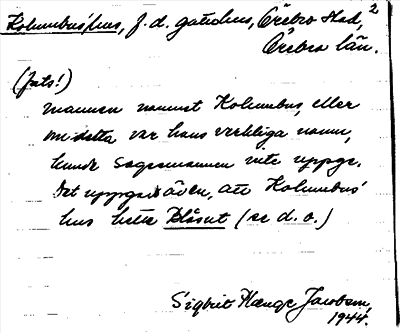 Kolumbus'hus, f. d. gatuhus, Örebro stad, 2
Örebro län.
(forts!)
mannen namnet Kolumbus, eller
om detta var hans verkliga namn,
kunde sagesmannen inte uppge.
Det uppges även, att Kolumbus'
hus hette Blåsut (se d. o.)
Sigbrit Plænge Jacobson,
1944.